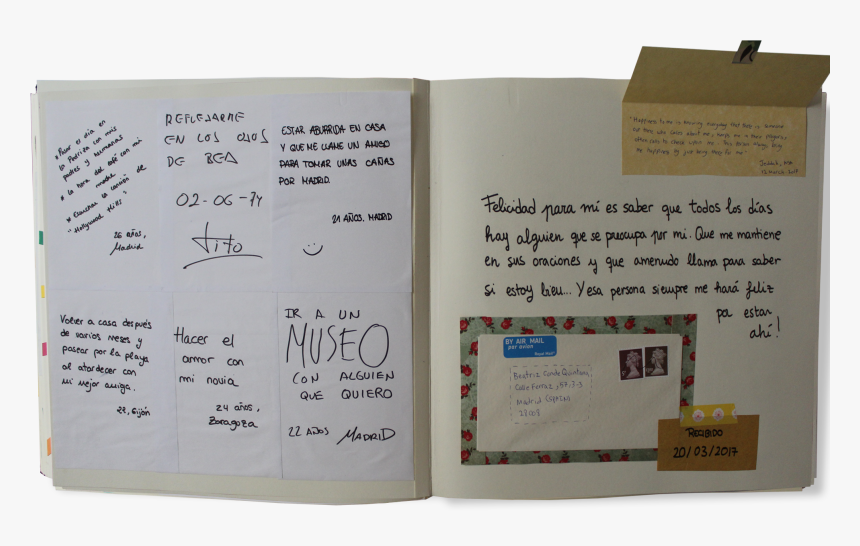 * Pasar el día en
la Pedriza con mis
padres y hermanas
* La hora del café con mi
madre
* Escuchar la canción de
"Hollywood Hills"
26 años,
Madrid
REFLEJARME
EN LOS OJOS
DE BEA
02-06-74
Tito
ESTAR ABURRIDA EN CASA
Y QUE ME LLAME UN AMIGO
PARA TOMAR UNAS CAÑAS
POR MADRID.
21 AÑOS. MADRID
Volver a casa después
de varios meses y
pasear por la playa
al atardecer con
mi mejor amiga.
22, Gijón
Hacer el
amor con
mi novia
24 años,
Zaragoza
IR A UN
MUSEO
CON ALGUIEN
QUE QUIERO
22 AÑOS MADRID
"Happiness to me is knowing everyday that there is someone
out there who cares about me, keeps me in their prayers,
often calls to check upon me. This person always brings
me happiness by just being there for me."
12 March, 2017
Felicidad para mí es saber que todos los días
hay alguien que se preocupa por mi. Que me mantiene
en sus oraciones y que amenudo llama para saber
si estoy bien... Y esa persona siempre me hará feliz
pa estar
ahí!
BY AIR MAIL
par avion
Royal Mail
Beatriz Conde Quintana
Calle Ferraz, 57. 3-3
Madrid España
28008
RECIBIDO
20/03/2017